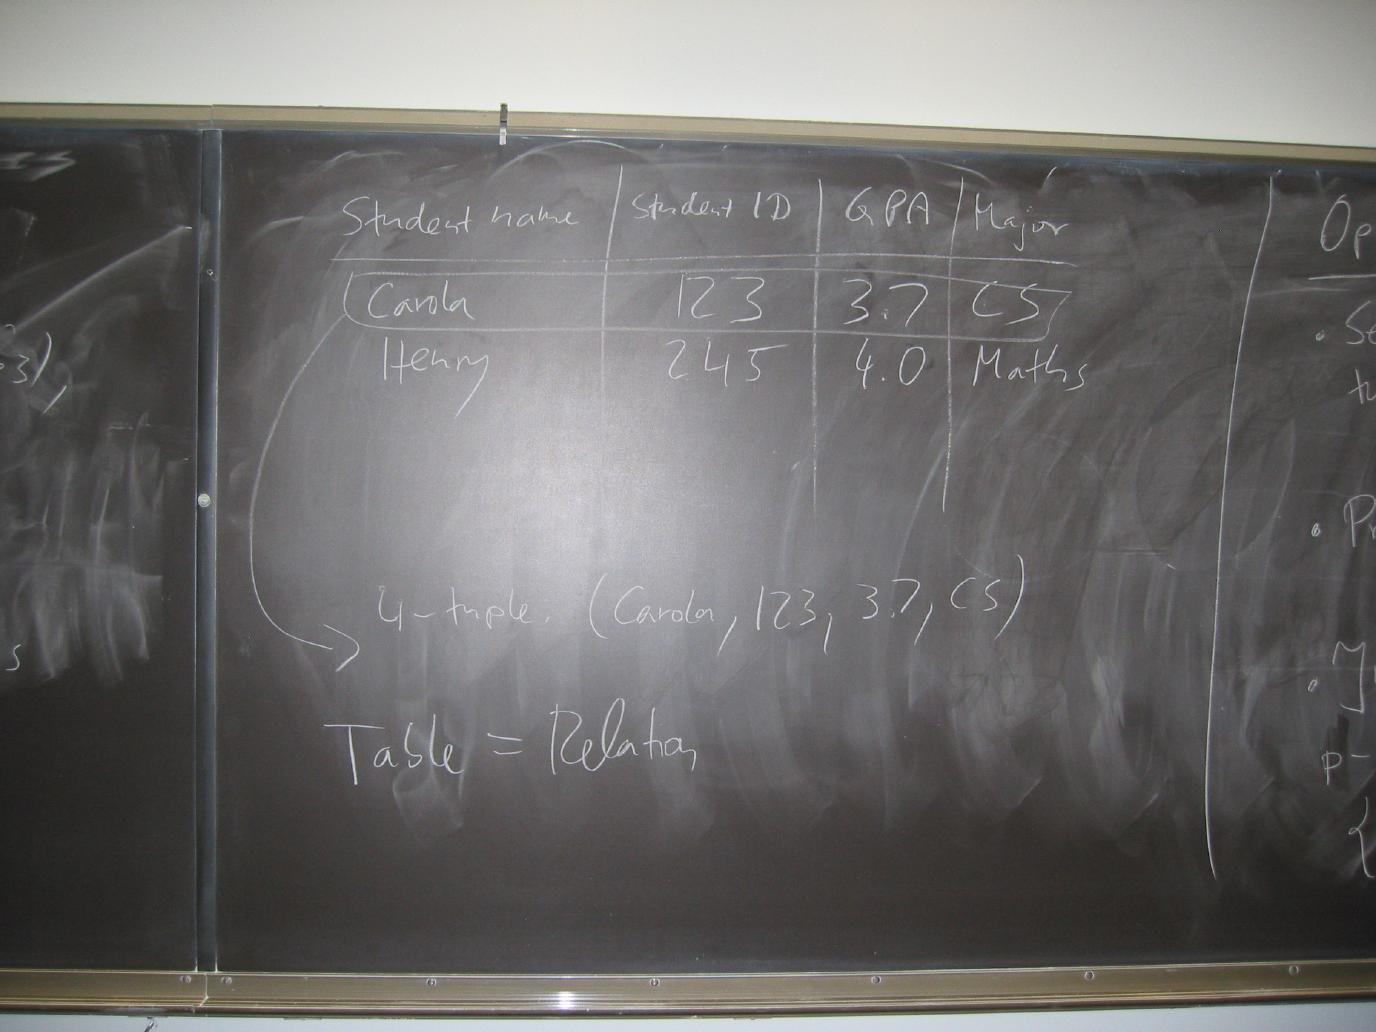 Student name Student ID GPA Major
Carola 123 3.7 CS
Henry 245 4.0 Maths
4-tuple. (Carola, 123, 3.7, CS)
Table = Relation
3),
s
Op
· Se
tu
· Pr
p-
{